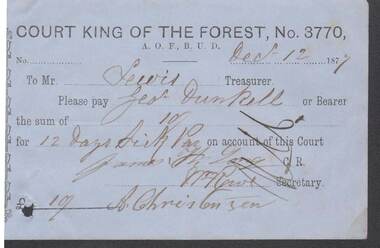 COURT KING OF THE FOREST, No. 3770,
A. O. F., B. U. D.
No. Dec 12 1877
To Mr Lewis Treasurer.
Please pay Geo Dunkell or Bearer
the sum of 19/
for 12 Days Sick Pay on account of this Court
James C. R.
Secretary.
19 A. Christensen